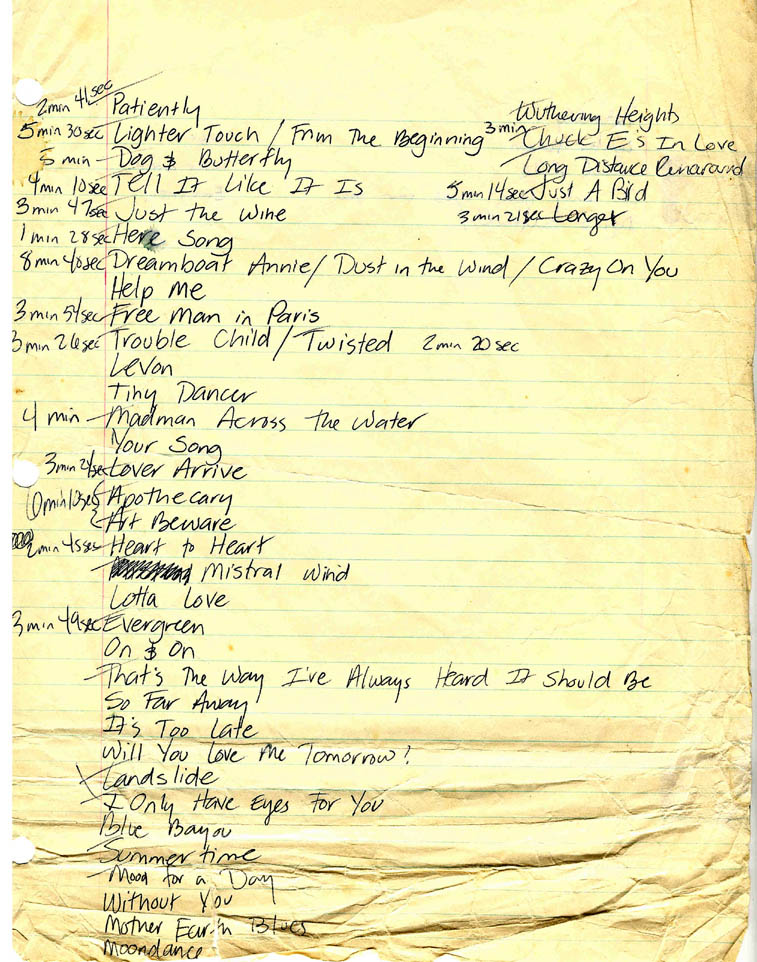 2 min 41 sec Patiently
5 min 30 sec Lighter Touch / From The Beginning
5 min - Dog & Butterfly
4 min 10 sec Tell It Like It Is
3 min 47 sec Just the Wine
1 min 28 sec Here Song
8 min 40 sec Dreamboat Annie / Dust in the Wind / Crazy On You
Help Me
3 min 54 sec Free Man in Paris
3 min 26 sec Trouble Child / Twisted 2 min 20 sec
Levon
Tiny Dancer
4 min - Madman Across the Water
Your Song
3 min 24 sec Lover Arrive
10 min 10 sec { Apothecary
Art Beware
2 min 45 sec Heart to Heart
Mistral Wind
Lotta Love
3 min 49 sec Evergreen
On & On
That's The Way I've Always Heard It Should Be
So Far Away
It's Too Late
Will You Love Me Tomorrow?
Landslide
I Only Have Eyes For You
Blue Bayou
Summertime
Mood for a Day
Without You
Mother Earth Blues
Moondance
Wuthering Heights
3 min Chuck E's In Love
Long Distance Runaround
5 min 14 sec Just A Bird
3 min 21 sec Longer